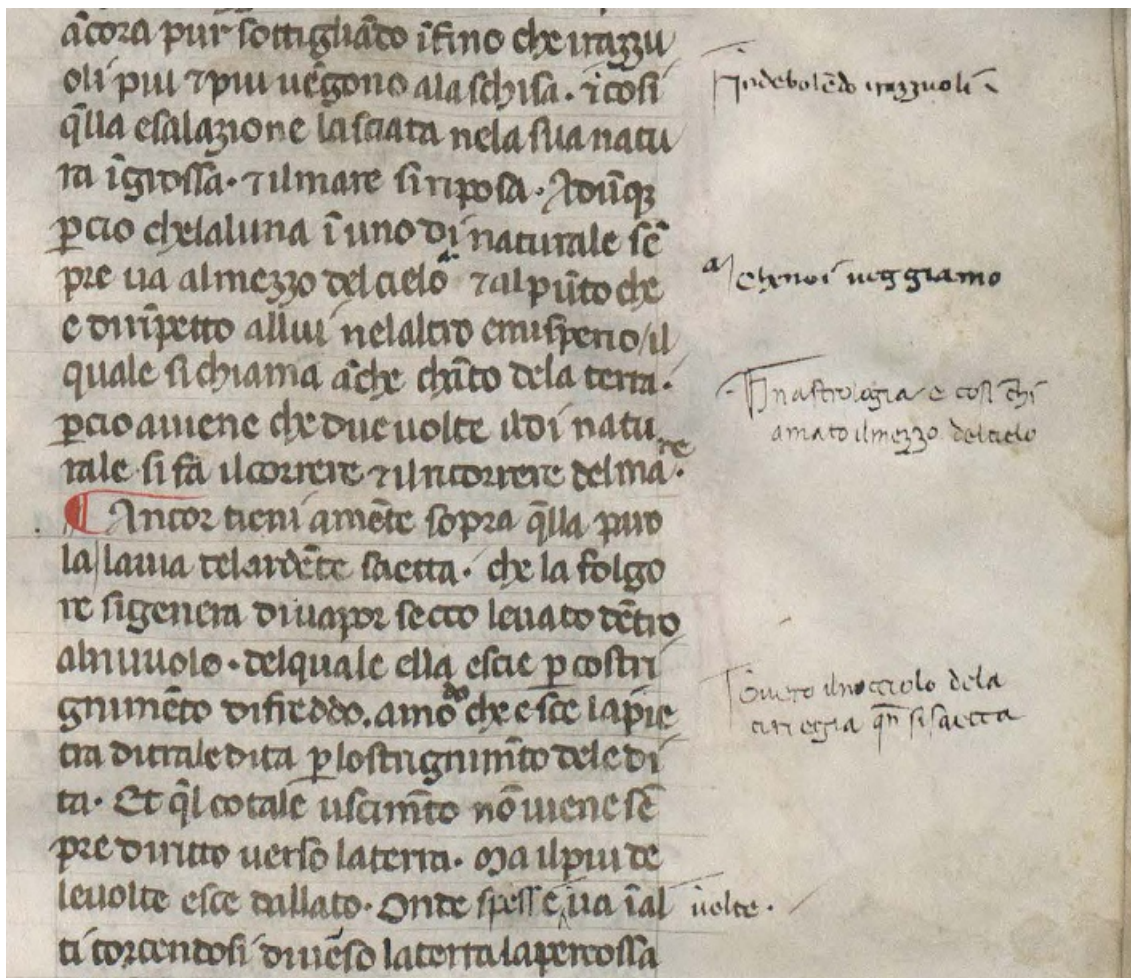 ãcora pur sottigliãdo ĩfino che irazzu
oli piu ⁊ piu uẽgono ala schisa · ⁊ cosi
q̃lla esalazione lasciata nela sua natu
ra ĩgrossa · ⁊ ilmare si riposa · Adũqꝫ
ꝑcio chelaluna ĩ uno di naturale sẽ
pre ua almezzo del cielo ⁊ al pũto che
e dirĩpetto allui nelaltro emisperio / il
quale si chiama ãche chãto dela terra ·
ꝑcio auiene che due uolte ildi natu
rale si fa ilcorrere ⁊ ilricorrere delma re ·
Ancor tieni amẽte sopra q̃lla paro
la / laiua telardẽte saetta · che la folgo
re sigenera diuapor secco leuato dẽtro
alnuuolo · delquale ella escie ꝑ costri
gnimẽto difreddo. amodo che esce lapie
tra ditraledita ꝑ lostrignimẽto dele di
ta · Et q̃l cotale uscimẽto nõ uiene sẽ
pre diritto uerso laterra · Ma ilpiu de
leuolte esce dallato · Onde spesse ua ĩal
ti torcendosi diuẽso laterra lapercossa
Indebolẽdo irazzuoli
a chenoi ueggiamo
In astrologia e cosi chi
amato ilmezzo delcielo
ouero ilnocciolo dela
ciriegia qñ si saetta
uolte ·